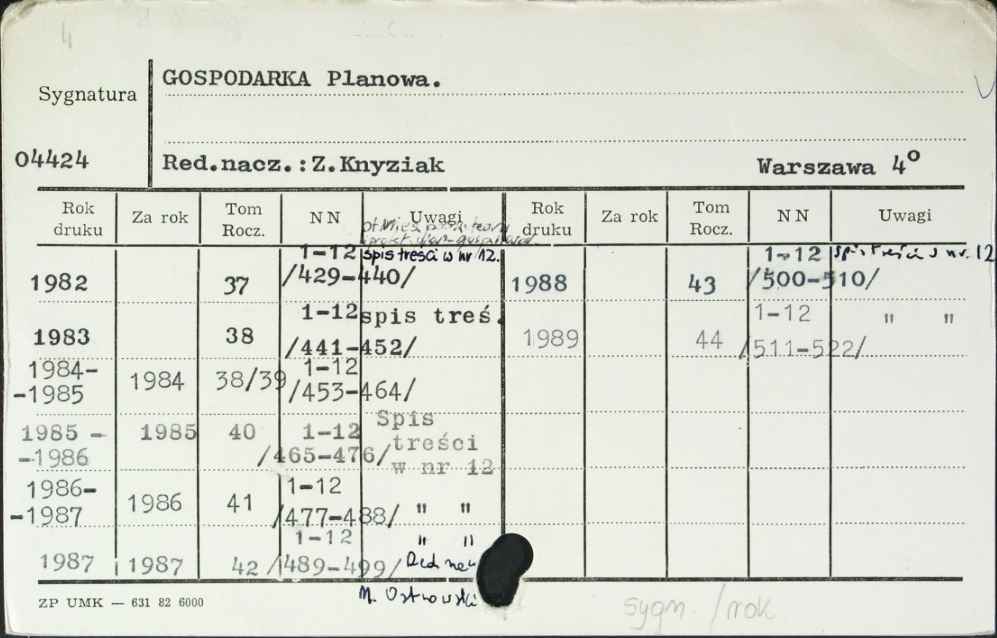 4
GOSPODARKA Planowa.
Sygnatura
04424
Red.nacz.:Z.Knyziak Warszawa 4°
Rok druku Za rok Tom Rocz. NN Uwagi Rok druku Za rok Tom Rocz. NN Uwagi
1982 37 1-12 /429-440/ spis treści w nr 12.
1983 38 1-12 /441-452/ spis treś.
1984- -1985 1984 38/39 1-12 /453-464/
1985 - -1986 1985 40 1-12 /465-476/ Spis treści w nr 12
1986- -1987 1986 41 1-12 /477-488/ " "
1987 1987 42 1-12 /489-499/ " "
M. Ostrowski
1988 43 1-12 /500-510/ spis treści w nr. 12
1989 44 1-12 /511-522/ " "
ZP UMK — 631 82 6000
sygn. /rok